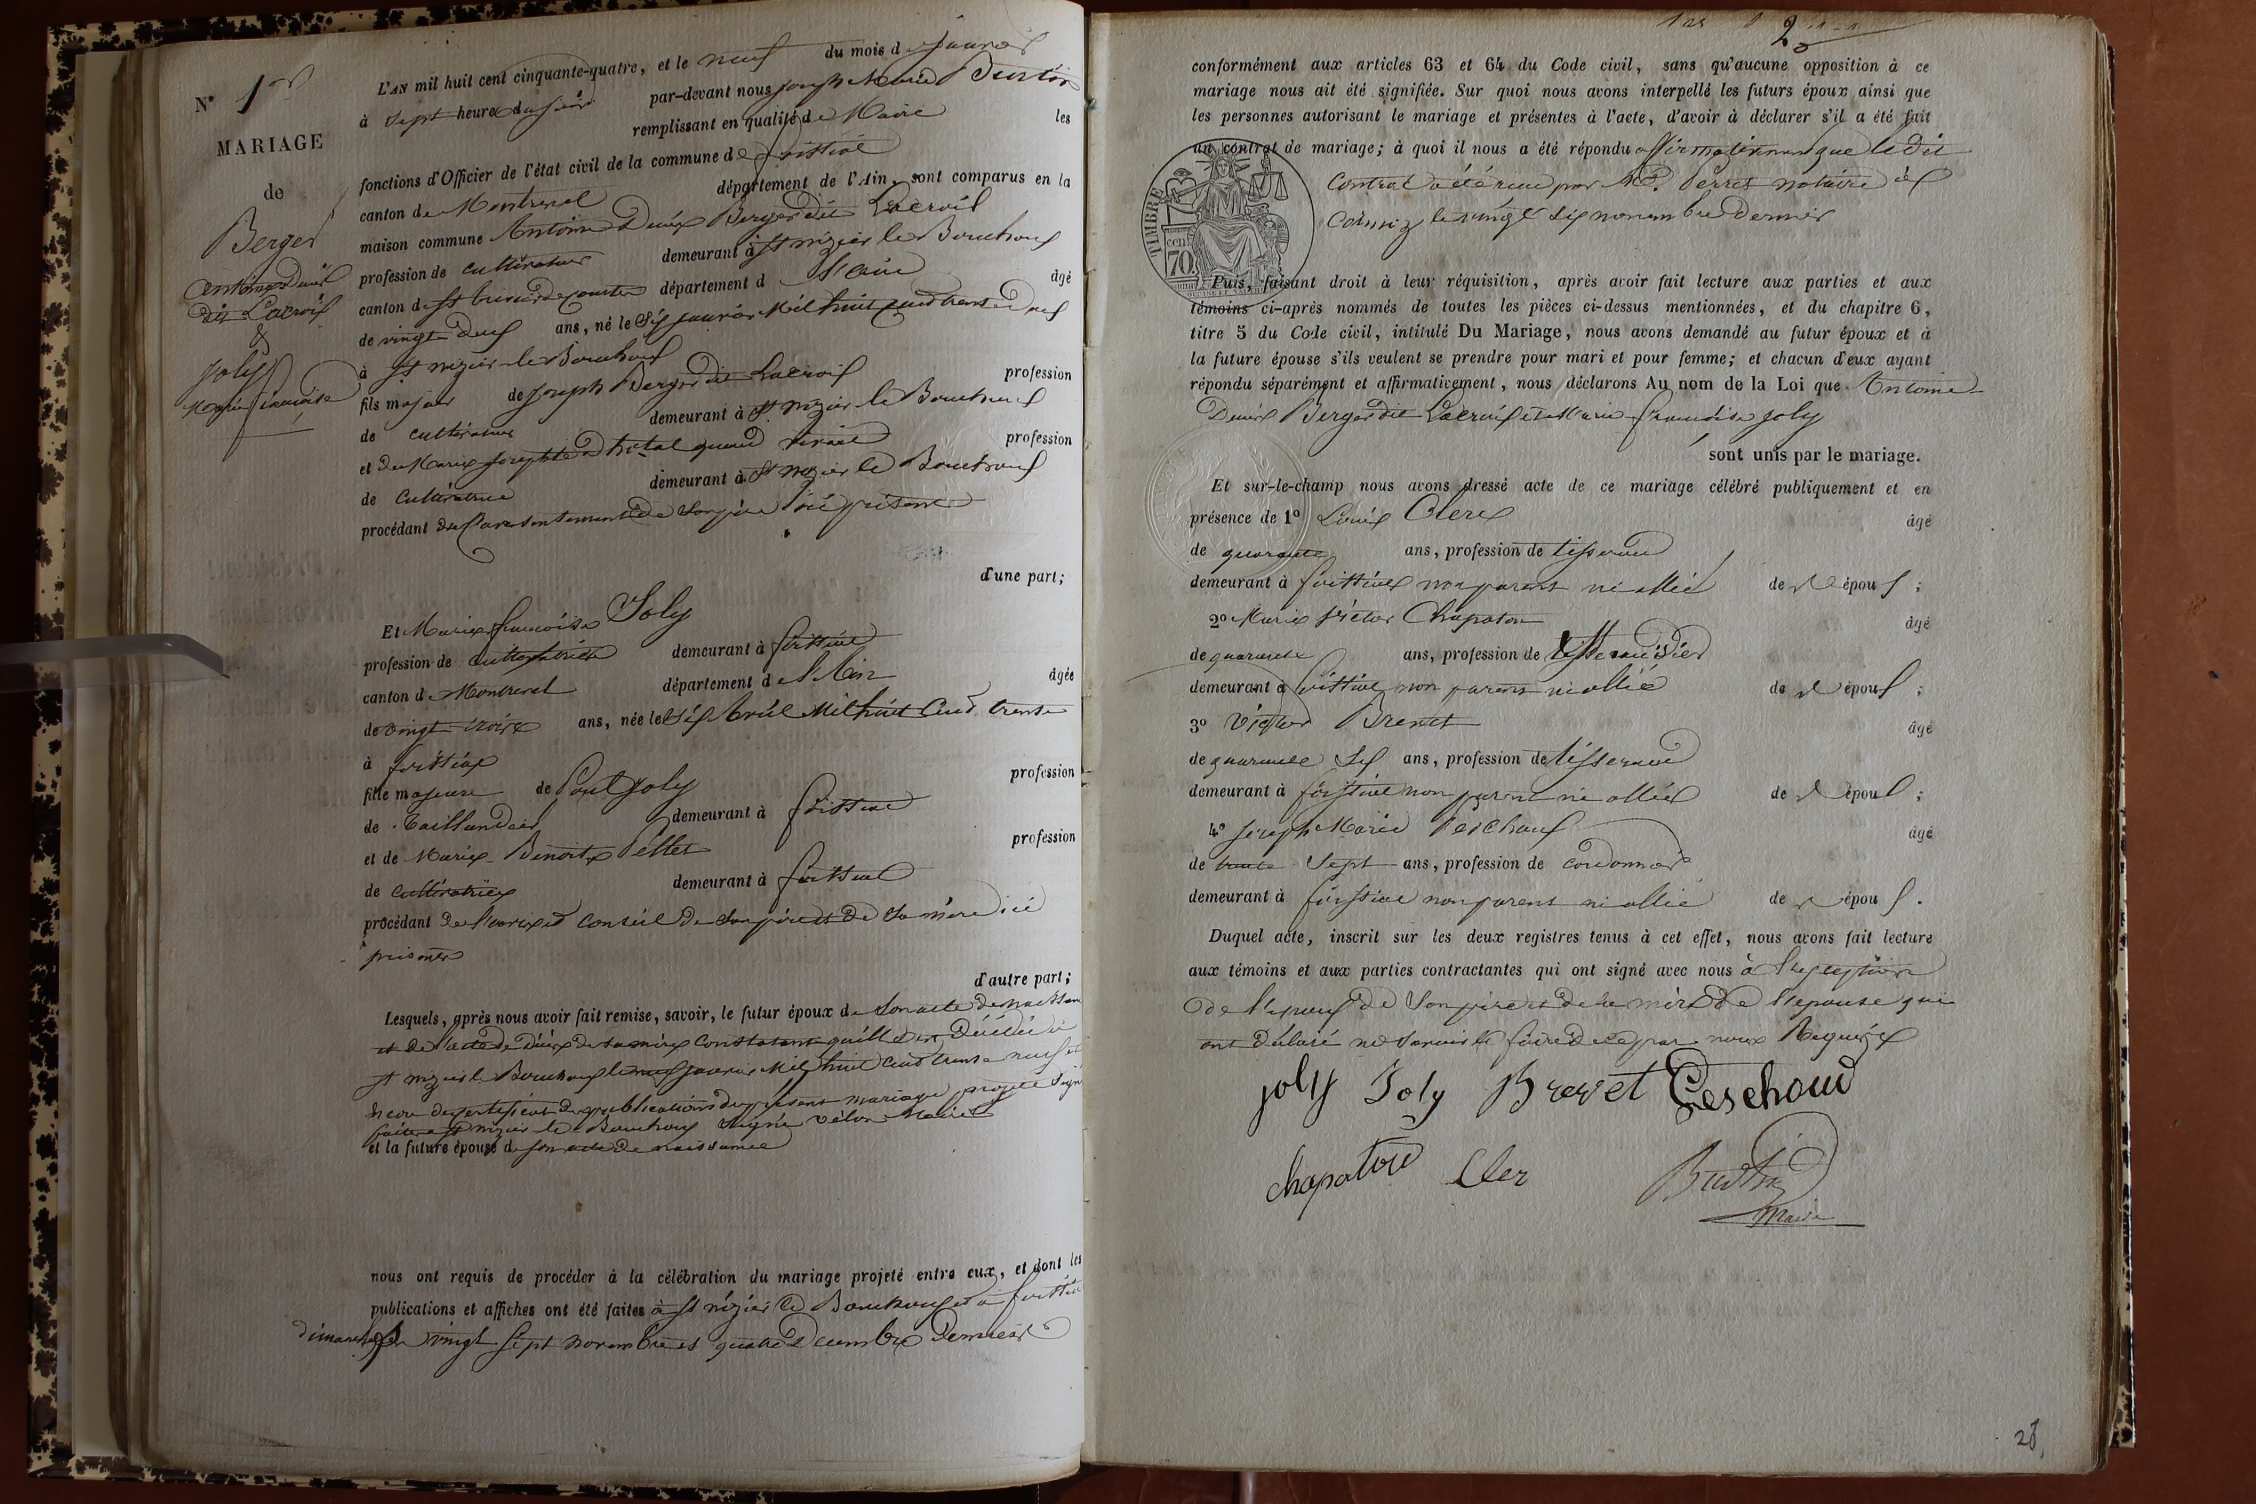 N° 1er
MARIAGE
de
Berger
Antoine Denis
dit Lacroix
&
Joly
Marie françoise
L'AN mil huit cent cinquante-quatre, et le neuf du mois de janvier
à sept heures du soir par-devant nous joseph Marie
remplissant en qualité de Maire les
fonctions d'Officier de l'état civil de la commune de foissiat
canton de Montrevel département de l'Ain, sont comparus en la
maison commune Antoine Denis Berger dit Lacroix
profession de cultivateur demeurant à St nizier le Bouchoux
canton de St trivier de courtes département de l'ain âgé
de vingt deux ans, né le six janvier Mil huit cent trente deux
à St nizier le Bouchoux
fils majeur de joseph Berger dit Lacroix profession
de cultivateur demeurant à St nizier le Bouchoux
et de Marie josephte quand vivait profession
de cultivatrice demeurant à St nizier le Bouchoux
procédant du consentement de son père ici présent
d'une part;
Et Marie françoise Joly
profession de cultivatrice demeurant à foissiat
canton de Montrevel département de l'Ain âgée
de vingt trois ans, née le six avril Mil huit cent trente
à foissiat
fille majeure de Paul joly profession
de Taillandier demeurant à foissiat
et de Marie Benoite Pellet profession
de cultivatrice demeurant à foissiat
procédant de l'avis et conseil de son père et de sa mère ici
présents
d'autre part;
Lesquels, après nous avoir fait remise, savoir, le futur époux de son acte de naissance
et de l'acte de décès de sa mère constatant qu'elle est décédée à
St nizier le Bouchoux le neuf janvier Mil huit cent trente neuf et
encore du certificat de publications du présent mariage projeté
faites à St nizier le Bouchoux signé Maire
et la future épouse de son acte de naissance
nous ont requis de procéder à la célébration du mariage projeté entre eux, et dont les
publications et affiches ont été faites à St nizier le Bouchoux et à foissiat
dimanches vingt sept novembre et quatre decembre dernier
2
conformément aux articles 63 et 64 du Code civil, sans qu'aucune opposition à ce
mariage nous ait été signifiée. Sur quoi nous avons interpellé les futurs époux ainsi que
les personnes autorisant le mariage et présentes à l'acte, d'avoir à déclarer s'il a été fait
un contrat de mariage; à quoi il nous a été répondu affirmativement que le dit
contrat a été reçu par Me. Perret notaire à
le vingt six novembre dernier
TIMBRE
cent
70.
Puis, faisant droit à leur réquisition, après avoir fait lecture aux parties et aux
témoins ci-après nommés de toutes les pièces ci-dessus mentionnées, et du chapitre 6,
titre 5 du Code civil, intitulé Du Mariage, nous avons demandé au futur époux et à
la future épouse s'ils veulent se prendre pour mari et pour femme; et chacun d'eux ayant
répondu séparément et affirmativement, nous déclarons Au nom de la Loi que Antoine
Denis Berger dit Lacroix et Marie françoise joly
sont unis par le mariage.
Et sur-le-champ nous avons dressé acte de ce mariage célébré publiquement et en
présence de 1° Louis Clerc âgé
de quarante ans, profession de tisserand
demeurant à foissiat non parent ni allié de l'époux;
2° Marie Victor Chapaton âgé
de quarante ans, profession de
demeurant à foissiat non parent ni allié de l'époux;
3° Victor Brevet âgé
de quarante six ans, profession de tisserand
demeurant à foissiat non parent ni allié de l'époux;
4° joseph Marie Peschoux âgé
de trente sept ans, profession de cordonnier
demeurant à foissiat non parent ni allié de l'époux.
Duquel acte, inscrit sur les deux registres tenus à cet effet, nous avons fait lecture
aux témoins et aux parties contractantes qui ont signé avec nous à l'exception
de l'epoux de son père et de la mère de l'epouse qui
ont déclaré ne savoir le faire de ce par nous Requis
joly Joly Brevet Peschoud
chapatou Cler
Maire
28